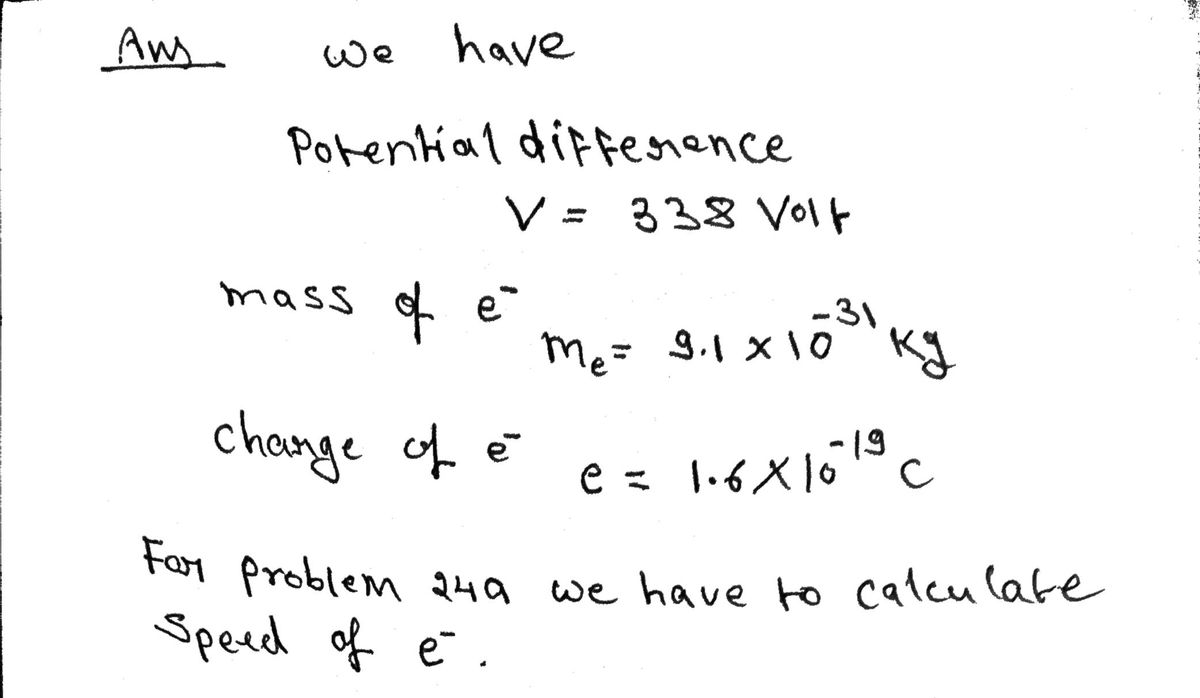 Ans we have
Potential difference
V = 338 Volt
mass of e⁻
mₑ = 9.1 × 10⁻³¹ Kg
charge of e⁻
e = 1.6 × 10⁻¹⁹ C
For problem 24a we have to calculate
Speed of e⁻.